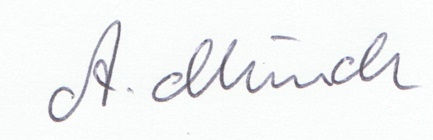 A. Münch